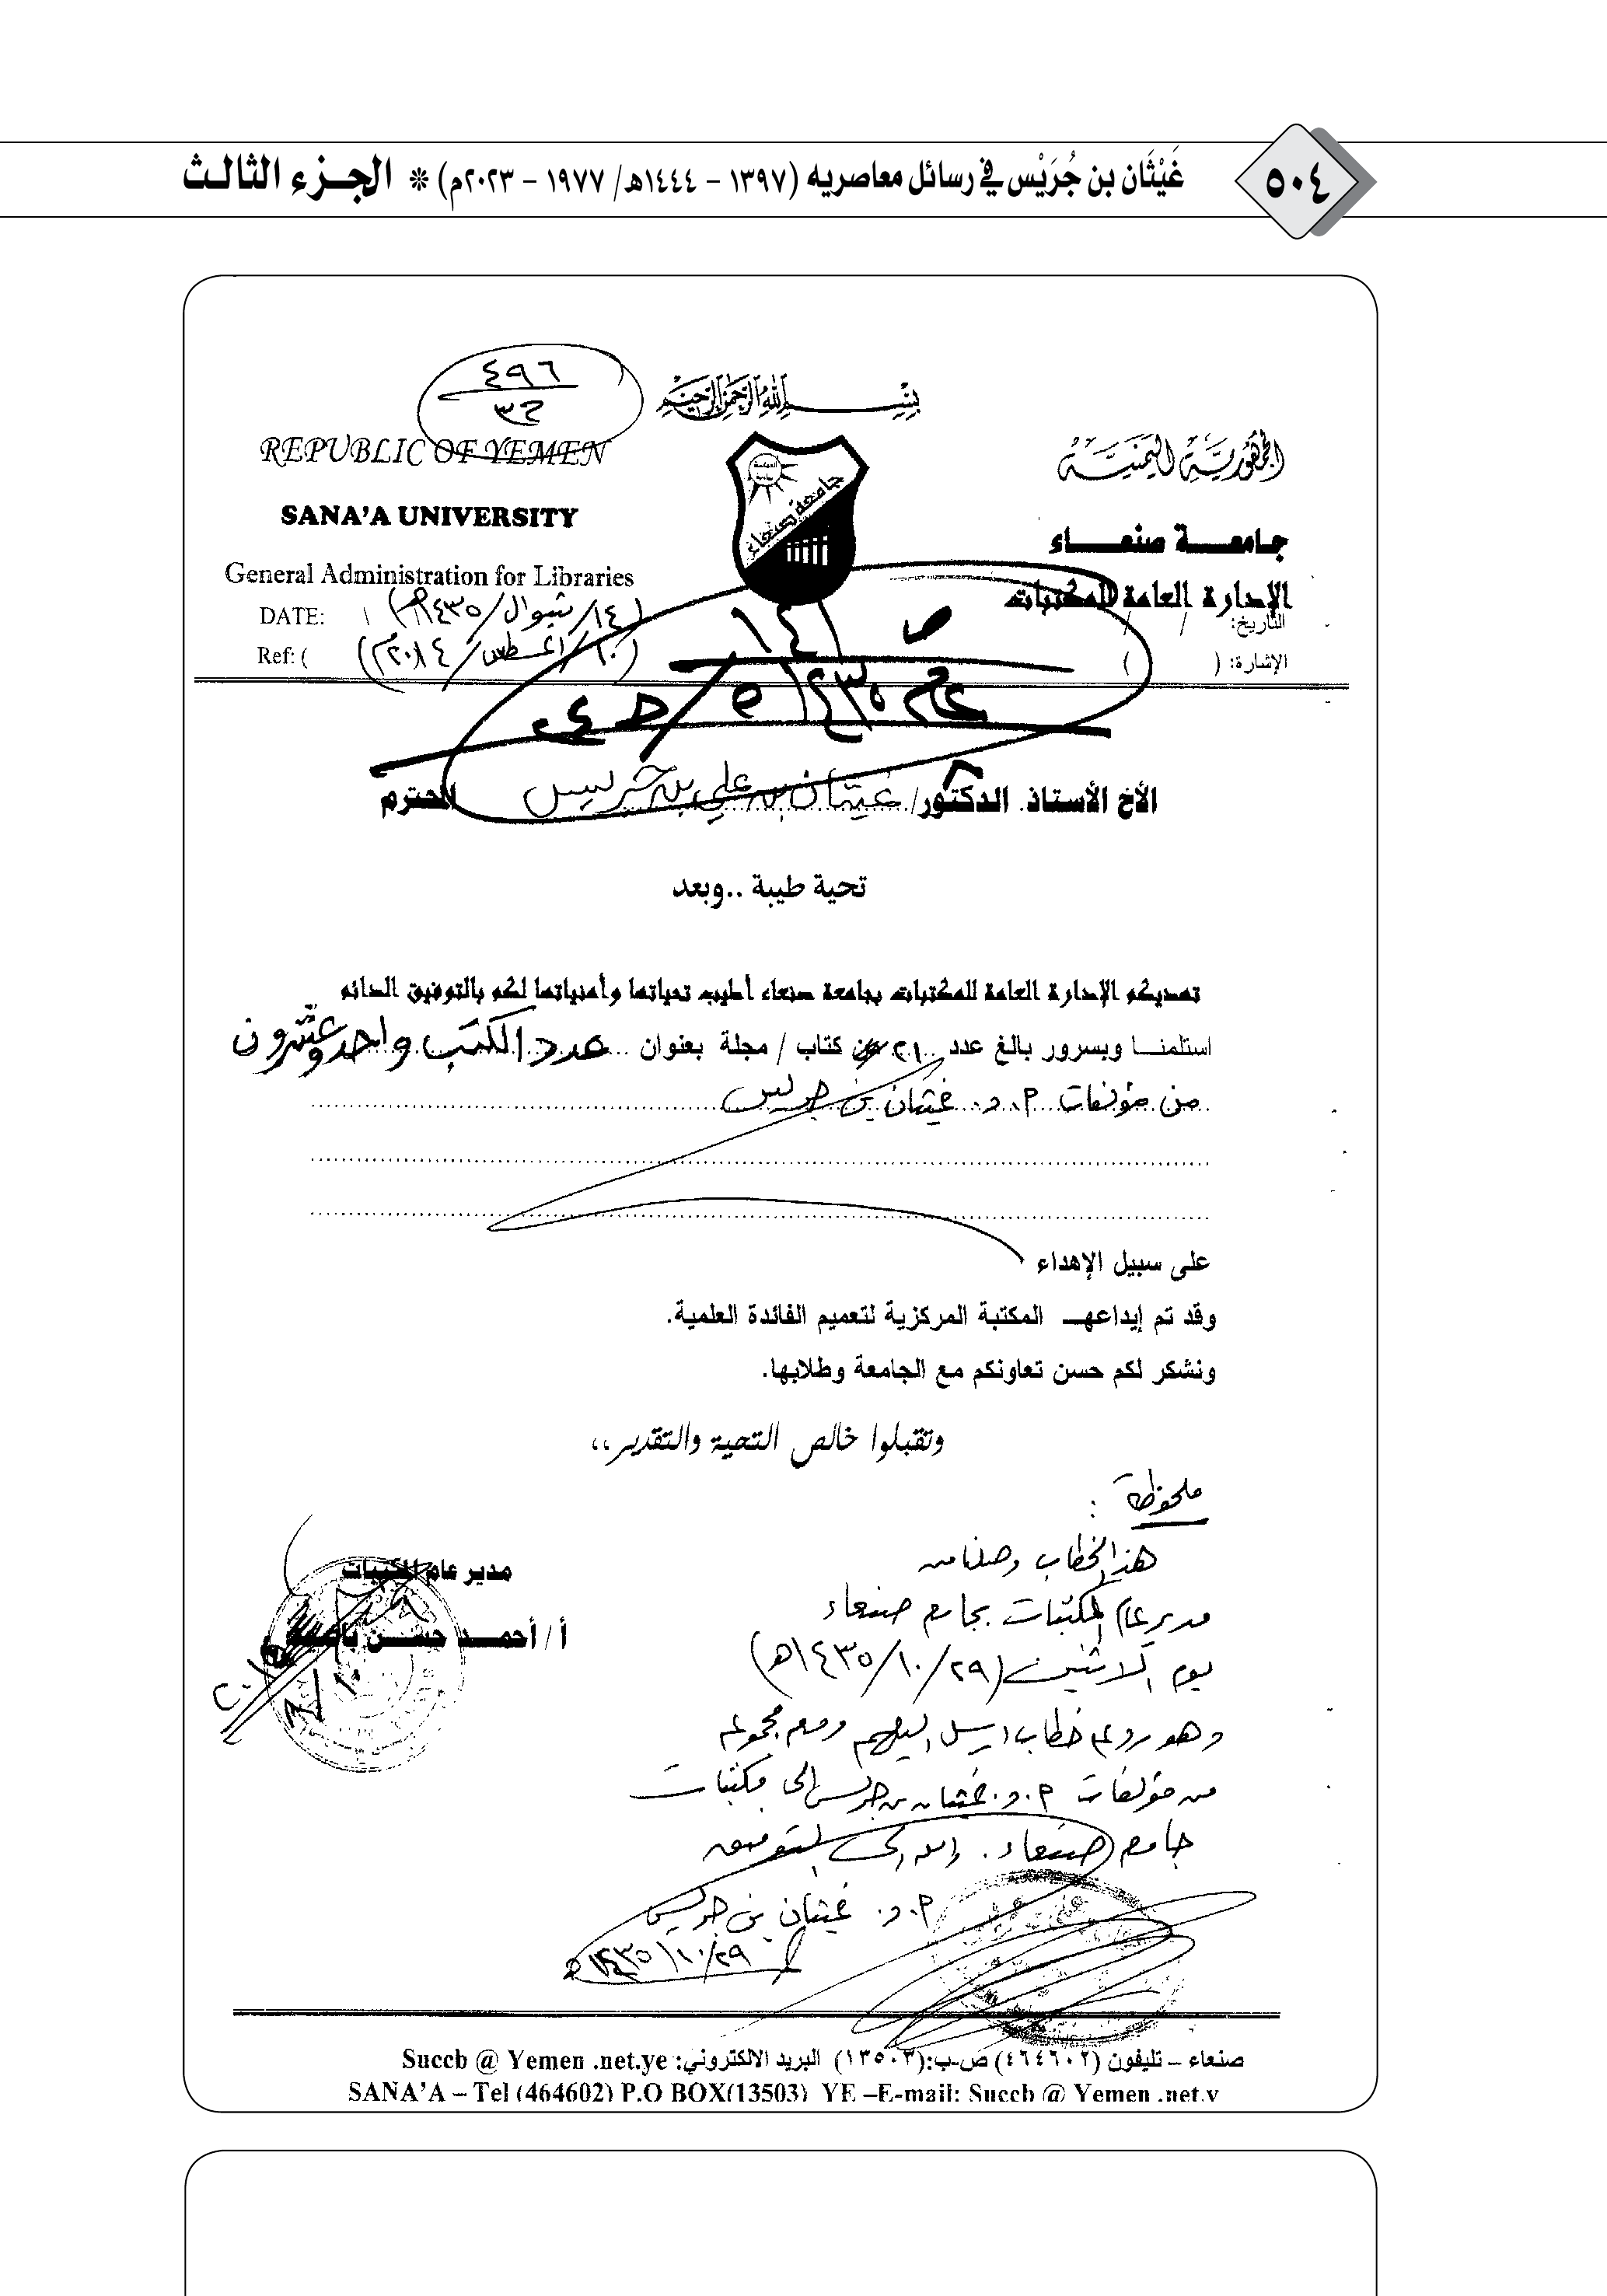 ٥٠٤
غَيْثَان بن جُرَيْس في رسائل معاصريه (١٣٩٧ - ١٤٤٤هـ/ ١٩٧٧ - ٢٠٢٣م) * الجـزء الثالـث
٤٩٦
٣٢
بسم الله الرحمن الرحيم
الجمهورية اليمنية
جامعــة صنعــاء
الإدارة العامة للمكتبات
التاريخ: / /
الإشارة: ( )
REPUBLIC OF YEMEN
SANA'A UNIVERSITY
General Administration for Libraries
DATE: (١٤/شوال/١٤٣٥هـ)
Ref: ( (١٠/أغسطس/٢٠١٤م)
جامعة صنعاء
ص ١٤
عام ١٤٣٥هـ
الأخ الأستاذ. الدكتور/ غيثان بن علي بن جريس المحترم
تحية طيبة ..وبعد
تهديكم الإدارة العامة للمكتبات بجامعة صنعاء أطيب تحياتها وأمنياتها لكم بالتوفيق الدائم
استلمنــا وبسرور بالغ عدد ٢١ من كتاب / مجلة بعنوان عدد الكتب واحد وعشرون
من مؤلفات أ.د. غيثان بن جريس
على سبيل الإهداء
وقد تم إيداعهــ المكتبة المركزية لتعميم الفائدة العلمية.
ونشكر لكم حسن تعاونكم مع الجامعة وطلابها.
وتقبلوا خالص التحية والتقدير،،
مدير عام المكتبات
أ / أحمــد حســن
ملحوظة :
هذا الخطاب وصلنا من
مدير عام المكتبات بجامعة صنعاء
يوم الاثنين (٢٩/١٠/١٤٣٥هـ)
وهو رد على خطاب ارسل إليهم ومعه مجموعة
من مؤلفات أ.د. غيثان بن جريس إلى مكتبات
جامعة صنعاء. والله ولي التوفيق
أ.د. غيثان بن جريس
٢٩/١٠/١٤٣٥هـ
صنعاء – تليفون (٤٦٤٦٠٢) ص-ب:(١٣٥٠٣) البريد الالكتروني: Succb @ Yemen .net.ye
SANA'A – Tel (464602) P.O BOX(13503) YE –E-mail: Succb @ Yemen .net.y